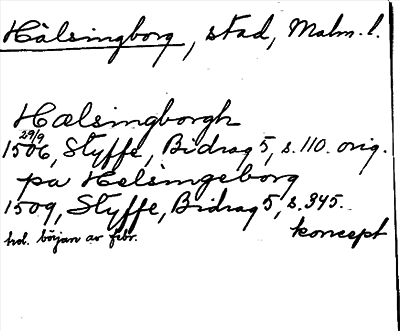 Hälsingborg, stad, Malm. l.
Hælsingborgh
1506 29/9, Styffe, Bidrag 5, s. 110. orig.
pa Helsingeborg
1509, Styffe, Bidrag 5, s. 345.
hd. början av febr. koncept